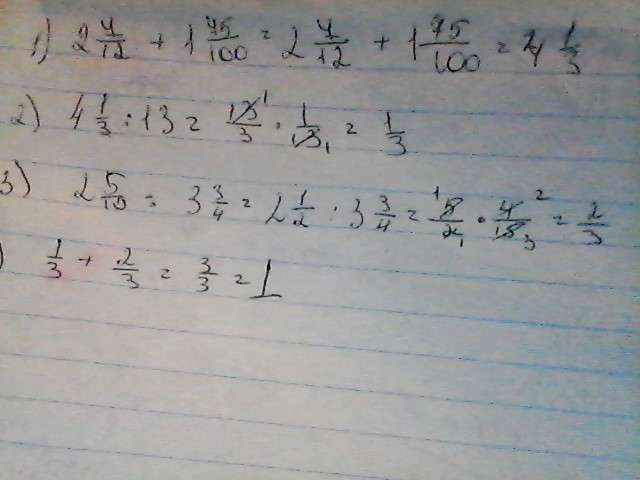 1) 2 7/12 + 1 75/100 = 2 7/12 + 1 75/100 = 4 1/3
2) 4 1/3 : 13 = 13/3 · 1/13 = 1/3
3) 2 5/10 : 3 3/4 = 2 1/2 : 3 3/4 = 5/2 · 4/15 = 2/3
) 1/3 + 2/3 = 3/3 = 1